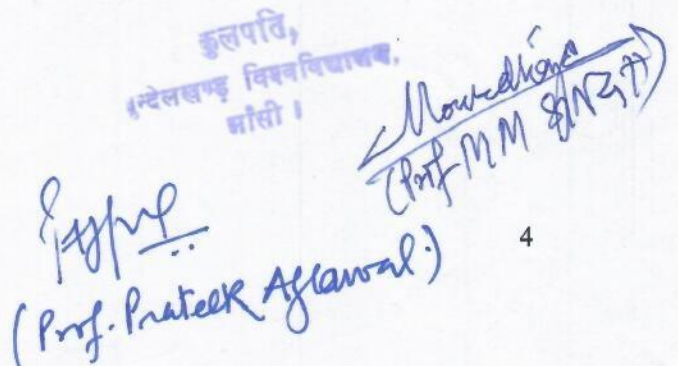 कुलपति,
बुन्देलखण्ड विश्वविद्यालय,
झाँसी।
(Prof M M
4
(Prof. Prateek Aglawal.)